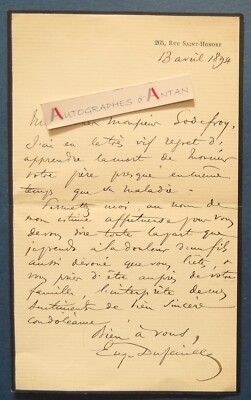 205, RUE SAINT-HONORÉ
13 avril 1894
AUTOGRAPHES D'ANTAN
Monsieur Godefroy,
J'ai eu le très vif regret d'
apprendre la mort de monsieur
votre père presque en même
temps que sa maladie.
Permettez moi, au nom de
mon estime affectueuse pour vous
de vous dire toute la part que
je prends à la douleur d'un fils
aussi dévoué que vous l'êtes, &
vous prier d'être auprès de votre
famille, l'interprète de mes
sentiments de bien sincère
condoléance.
Bien à vous,
Eug. Dufeuille